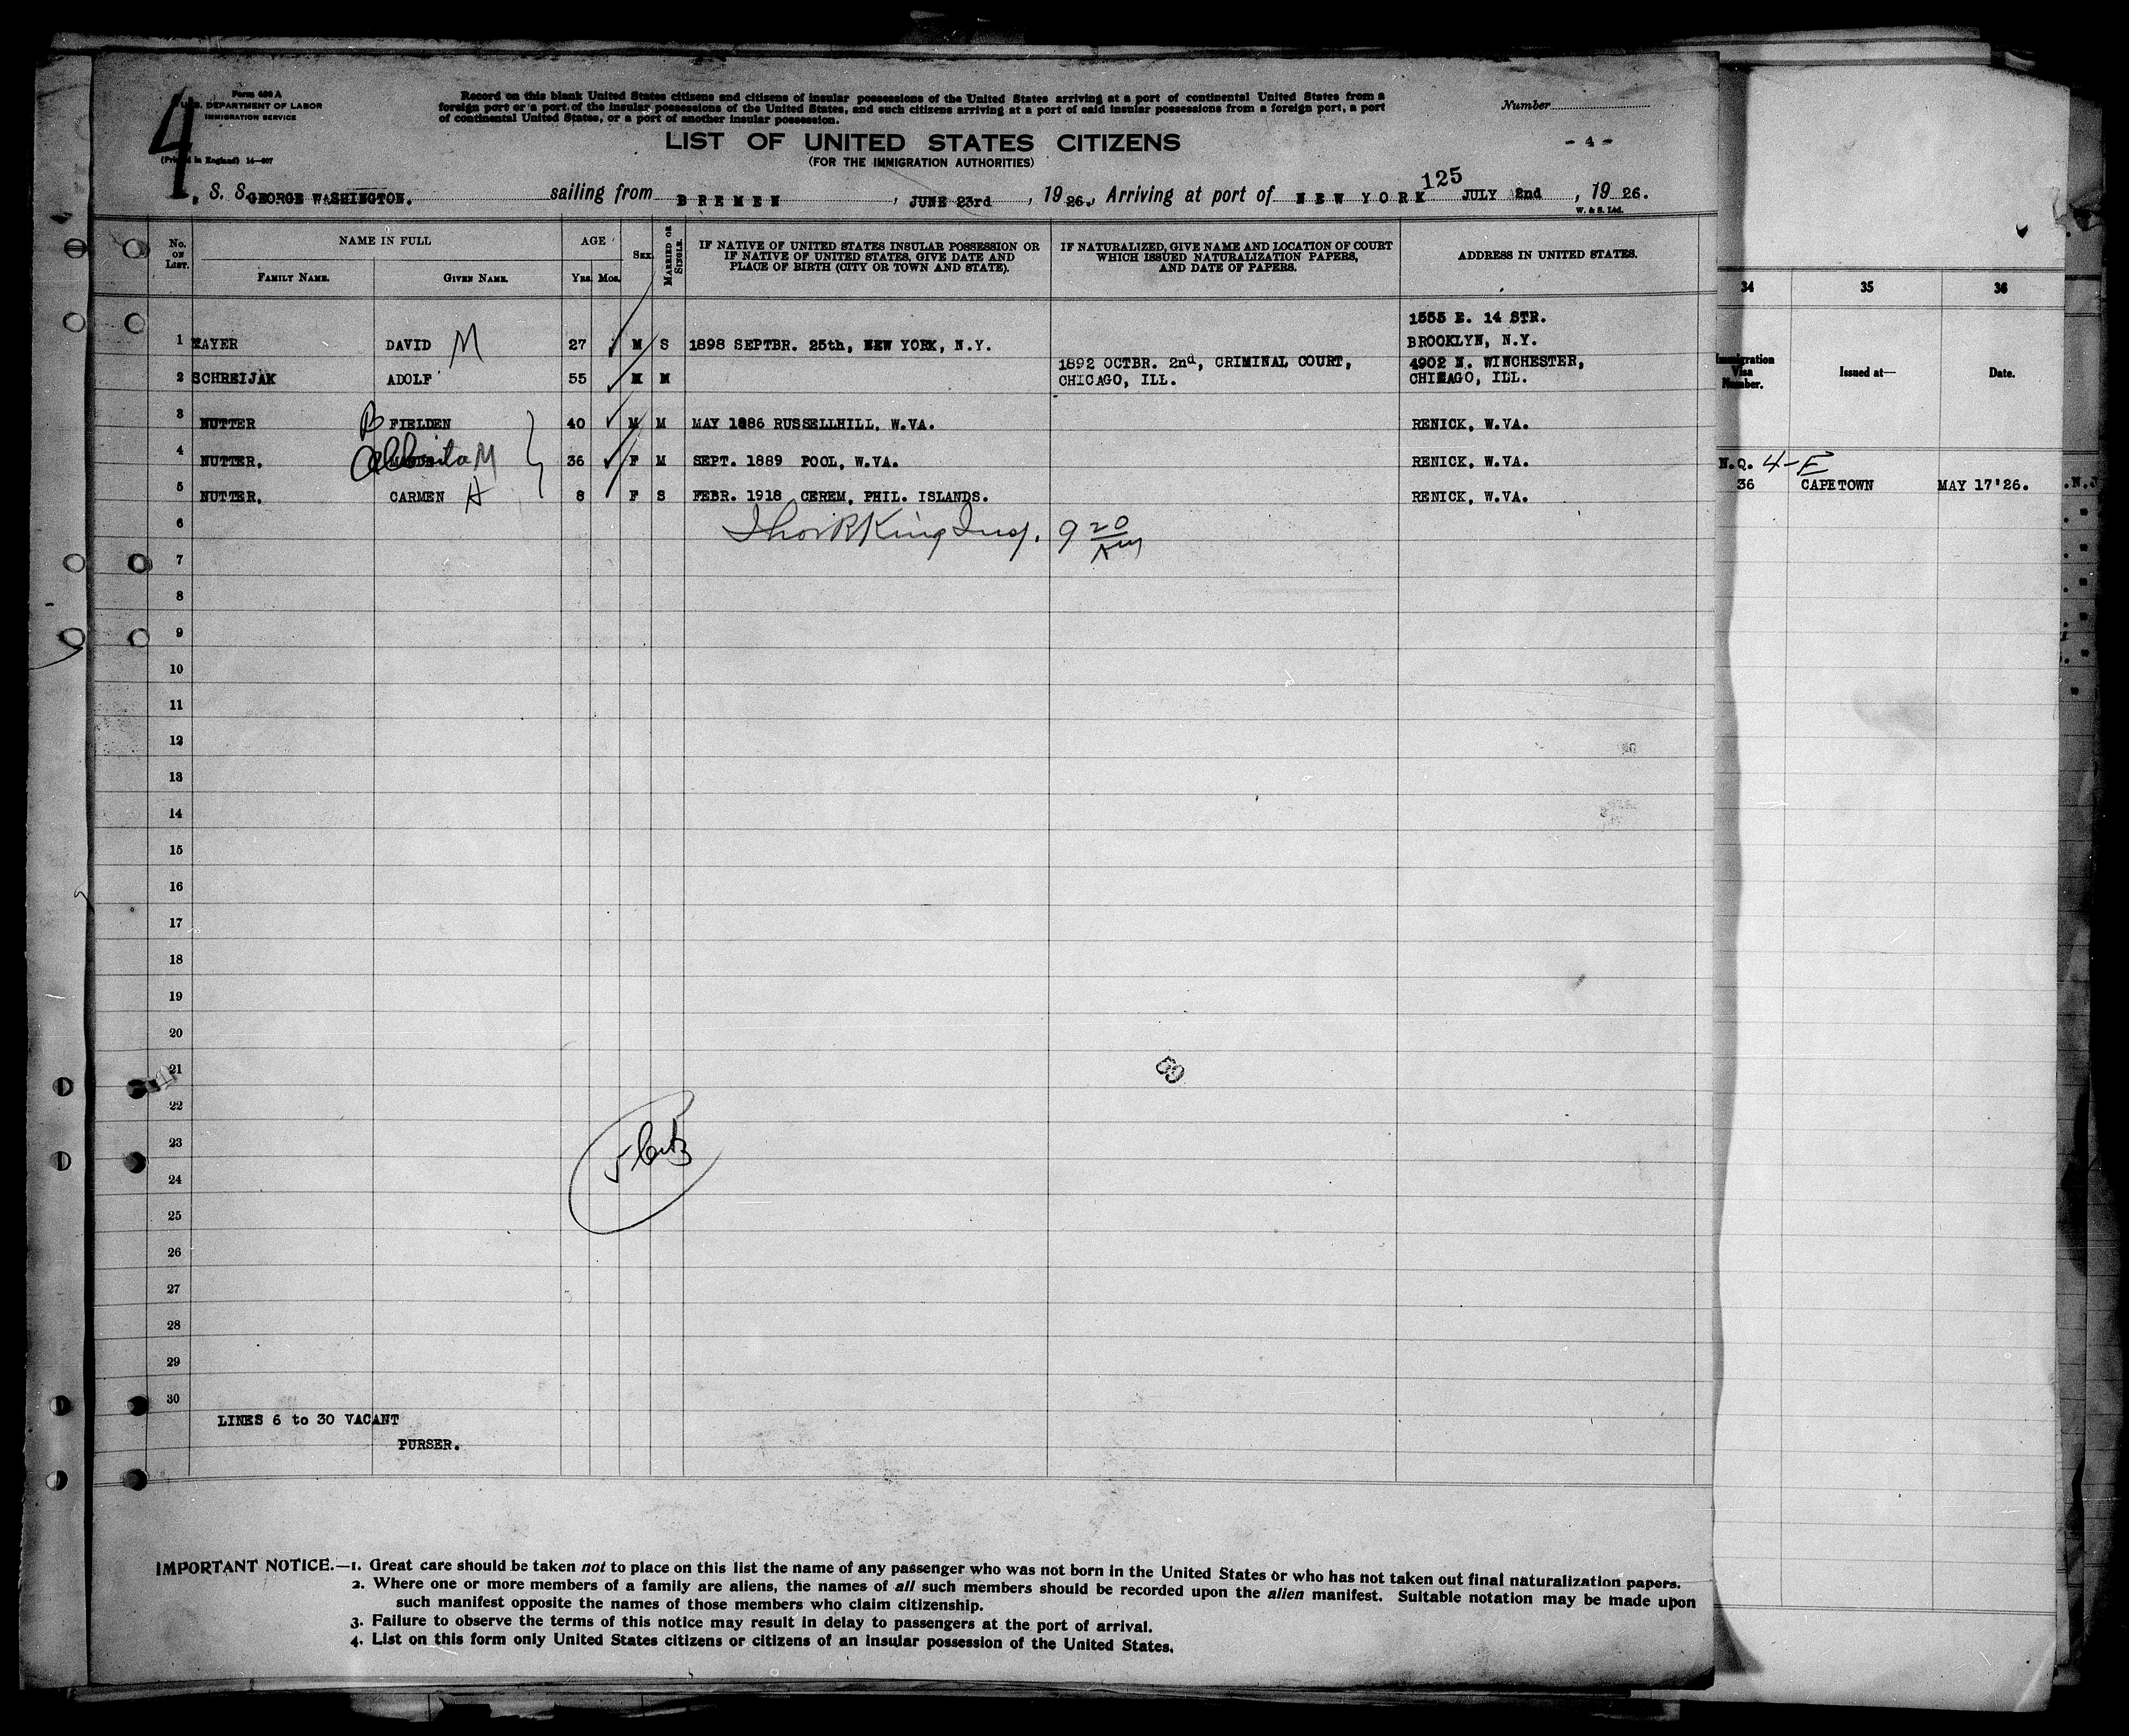 4
Form 630 A
U.S. DEPARTMENT OF LABOR
IMMIGRATION SERVICE
(Printed in England) 14—607
Record on this blank United States citizens and citizens of insular possessions of the United States arriving at a port of continental United States from a
foreign port or a port of the insular possessions of the United States, and such citizens arriving at a port of said insular possessions from a foreign port, a port
of continental United States, or a port of another insular possession.
Number
LIST OF UNITED STATES CITIZENS
(FOR THE IMMIGRATION AUTHORITIES)
- 4 -
S. S. GEORGE WASHINGTON. sailing from BREMEN, JUNE 23rd, 1926., Arriving at port of NEW YORK 125 JULY 2nd, 1926.
W. & S. Ltd.
No. ON LIST. NAME IN FULL AGE SEX. MARRIED OR SINGLE. IF NATIVE OF UNITED STATES INSULAR POSSESSION OR IF NATIVE OF UNITED STATES, GIVE DATE AND PLACE OF BIRTH (CITY OR TOWN AND STATE). IF NATURALIZED, GIVE NAME AND LOCATION OF COURT WHICH ISSUED NATURALIZATION PAPERS, AND DATE OF PAPERS. ADDRESS IN UNITED STATES.
FAMILY NAME. GIVEN NAME. Yrs. Mos.
34 35 36
1555 E. 14 STR.
1 MAYER DAVID M 27 M S 1898 SEPTBR. 25th, NEW YORK, N.Y. BROOKLYN, N.Y.
1892 OCTBR. 2nd, CRIMINAL COURT, 4902 N. WINCHESTER,
2 SCHREIJAK ADOLF 55 M M CHICAGO, ILL. CHICAGO, ILL.
Immigration Visa Number. Issued at— Date.
3 NUTTER B FIELDEN 40 M M MAY 1886 RUSSELLHILL, W.VA. RENICK, W.VA.
4 NUTTER. M 36 F M SEPT. 1889 POOL, W.VA. RENICK, W.VA.
N.Q. 4-E
5 NUTTER. CARMEN H 8 F S FEBR. 1918 CEREM, PHIL. ISLANDS. RENICK, W.VA.
36 CAPETOWN MAY 17'26.
6 Thos R King Insp. 9 20 Am
7
8
9
10
11
12
13
14
15
16
17
18
19
20
21
22
23
24
25
26
27
28
29
30
5
LINES 6 to 30 VACANT
PURSER.
IMPORTANT NOTICE.—1. Great care should be taken not to place on this list the name of any passenger who was not born in the United States or who has not taken out final naturalization papers.
2. Where one or more members of a family are aliens, the names of all such members should be recorded upon the alien manifest. Suitable notation may be made upon
such manifest opposite the names of those members who claim citizenship.
3. Failure to observe the terms of this notice may result in delay to passengers at the port of arrival.
4. List on this form only United States citizens or citizens of an insular possession of the United States.